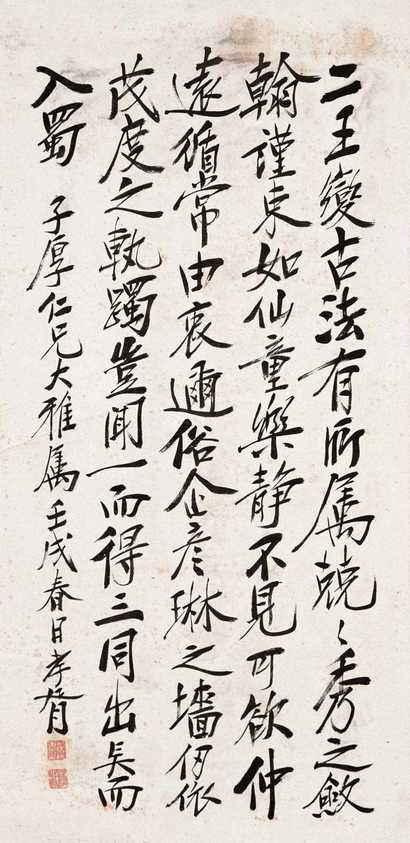 二王變古法有所屬兢〻秀之斂
翰謹束如仙童樂靜不見可欲仲
遠循常由衷邇俗企彥琳之墻仞依
茂度之軌躅豈聞一而得三同出吳而
入蜀 子厚仁兄大雅屬 壬戌春日孝胥